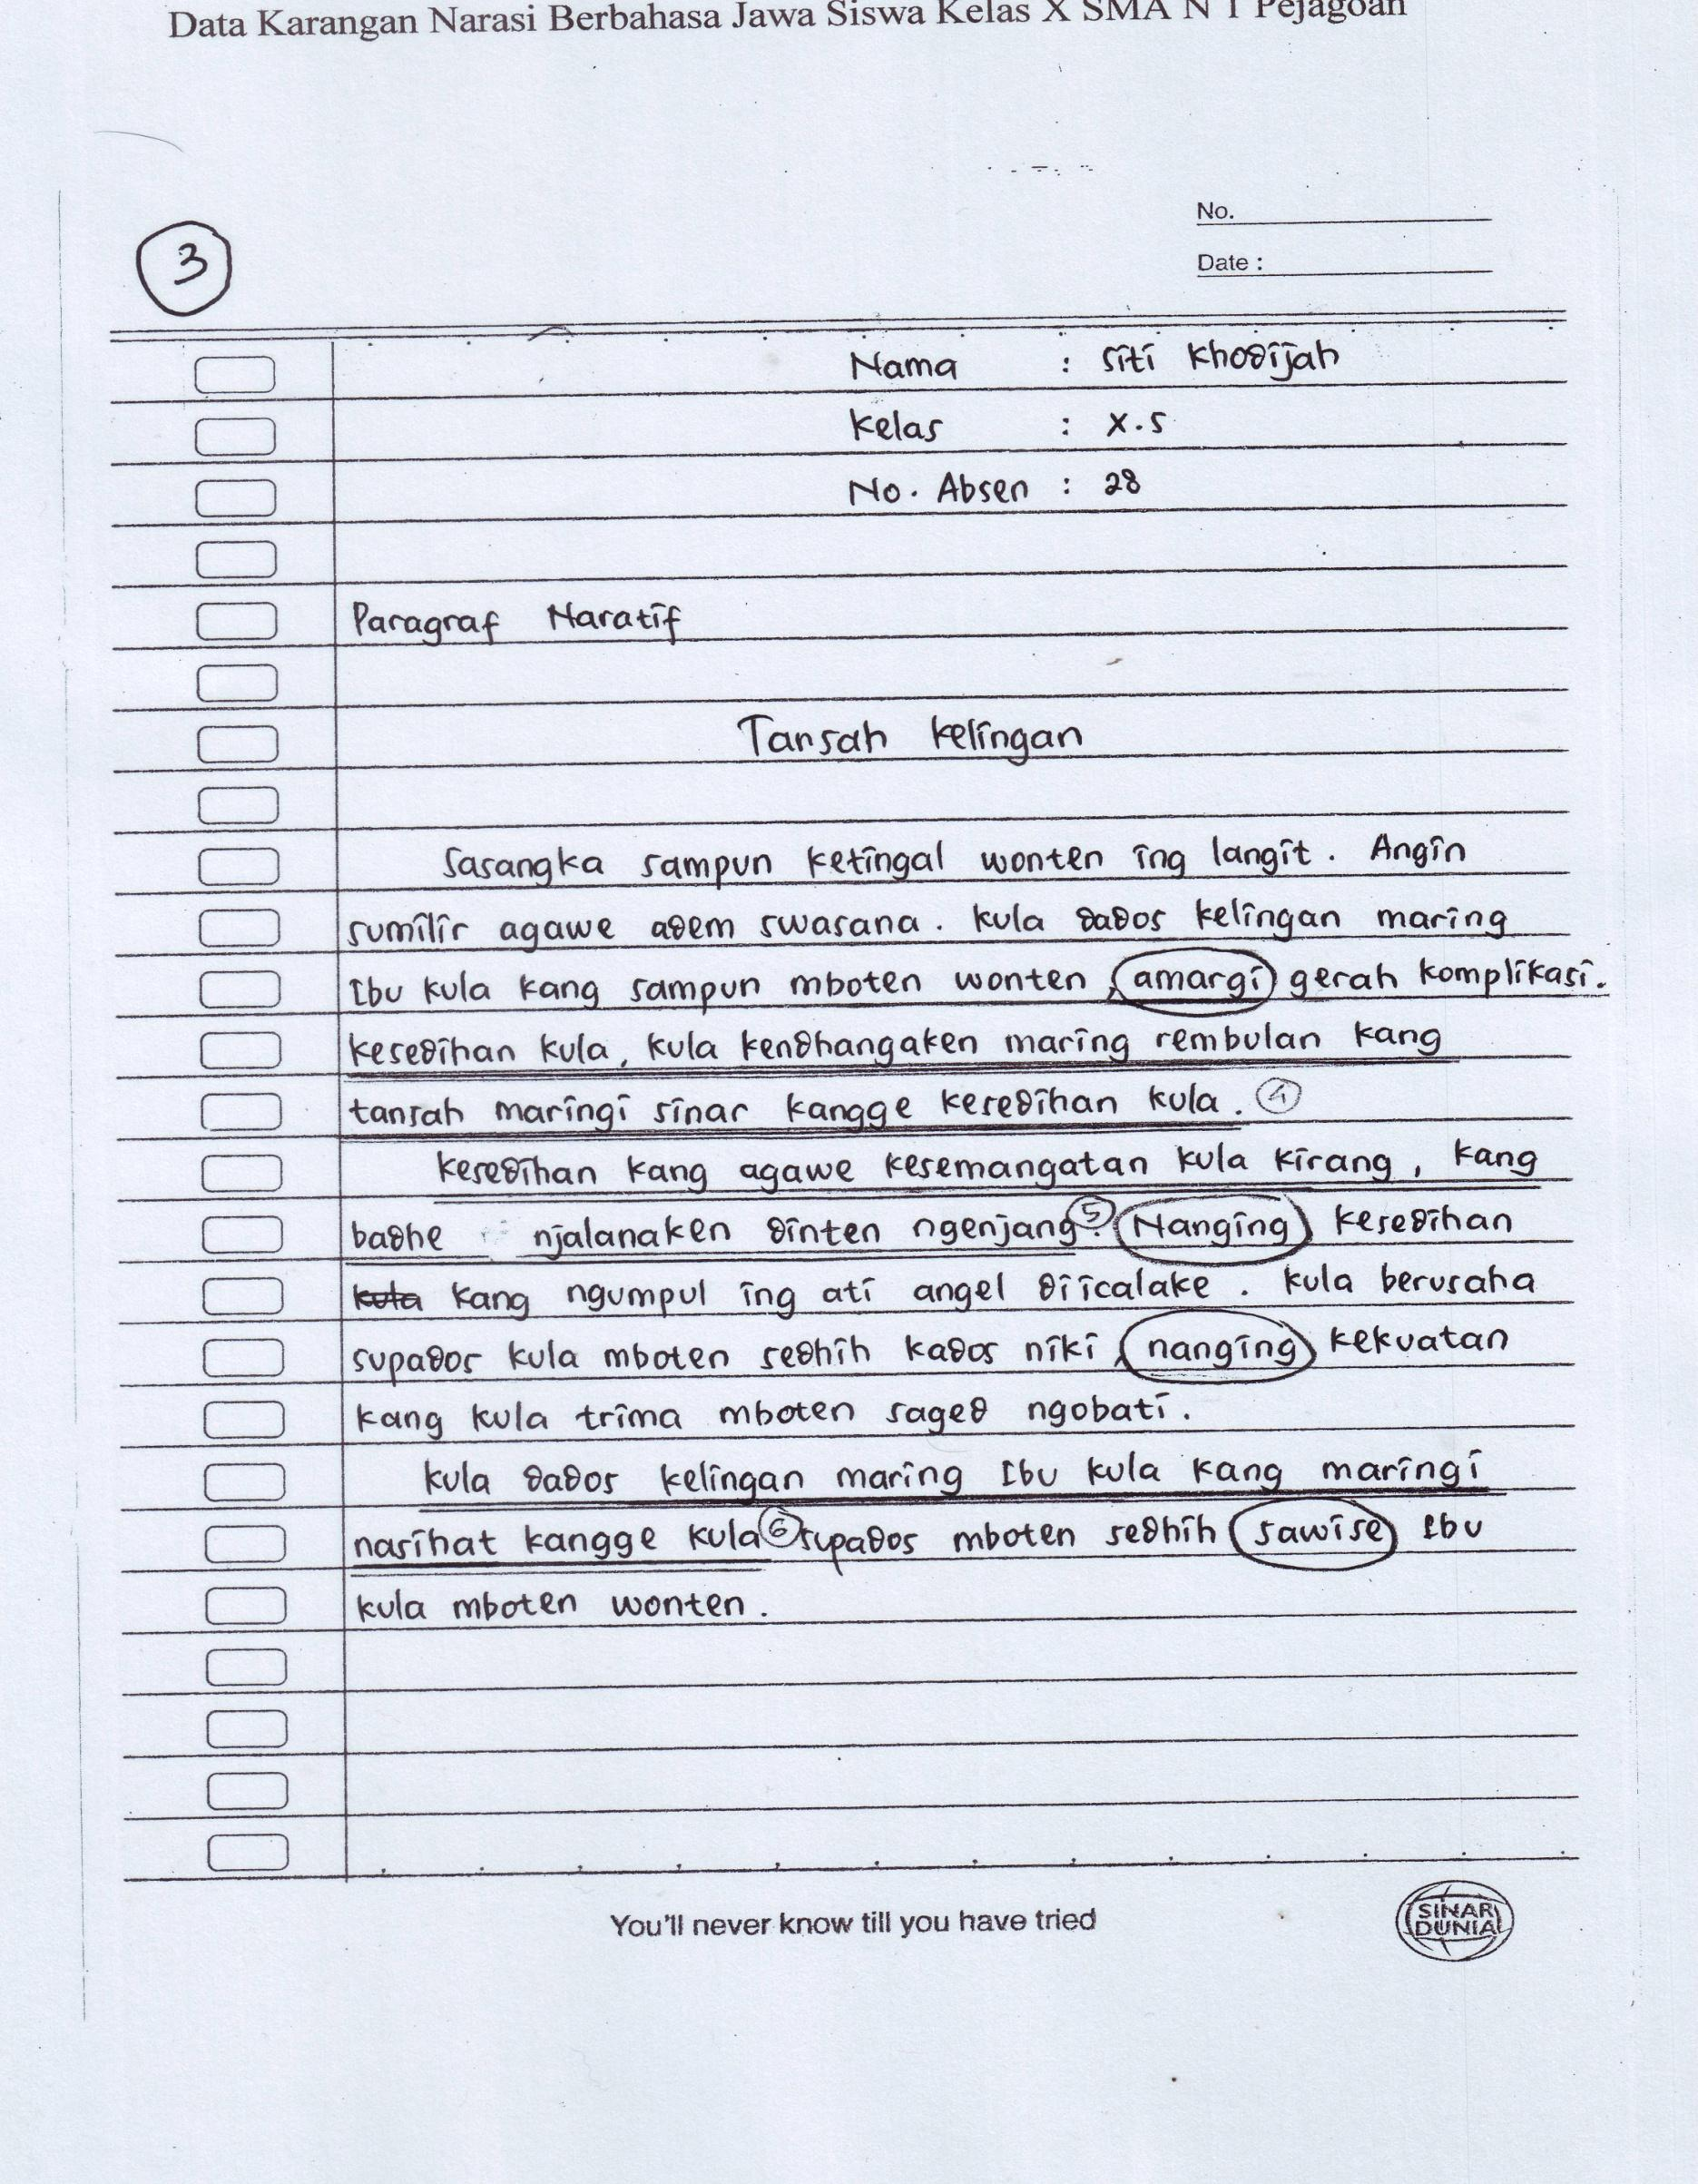 Data Karangan Narasi Berbahasa Jawa Siswa Kelas X SMA N 1 Pejagoan
No.
Date :
3
Nama : Siti Khodijah
Kelas : X.5
No. Absen : 28
Paragraf Naratif
Tansah kelingan
Sasangka sampun ketingal wonten ing langit. Angin
sumilir agawe adem swasana. kula dados kelingan maring
Ibu kula kang sampun mboten wonten, amargi gerah komplikasi.
kesedihan kula, kula kendhangaken maring rembulan kang
tansah maringi sinar kangge kesedihan kula. 4
kesedihan kang agawe kesemangatan kula kirang, kang
badhe njalanaken dinten ngenjang. 5 Nanging kesedihan
kula kang ngumpul ing ati angel diicalake. kula berusaha
supados kula mboten sedhih kados niki, nanging kekuatan
kang kula trima mboten saged ngobati.
kula dados kelingan maring Ibu kula kang maringi
nasihat kangge kula 6 supados mboten sedhih sawise Ibu
kula mboten wonten.
You'll never know till you have tried
SINAR DUNIA